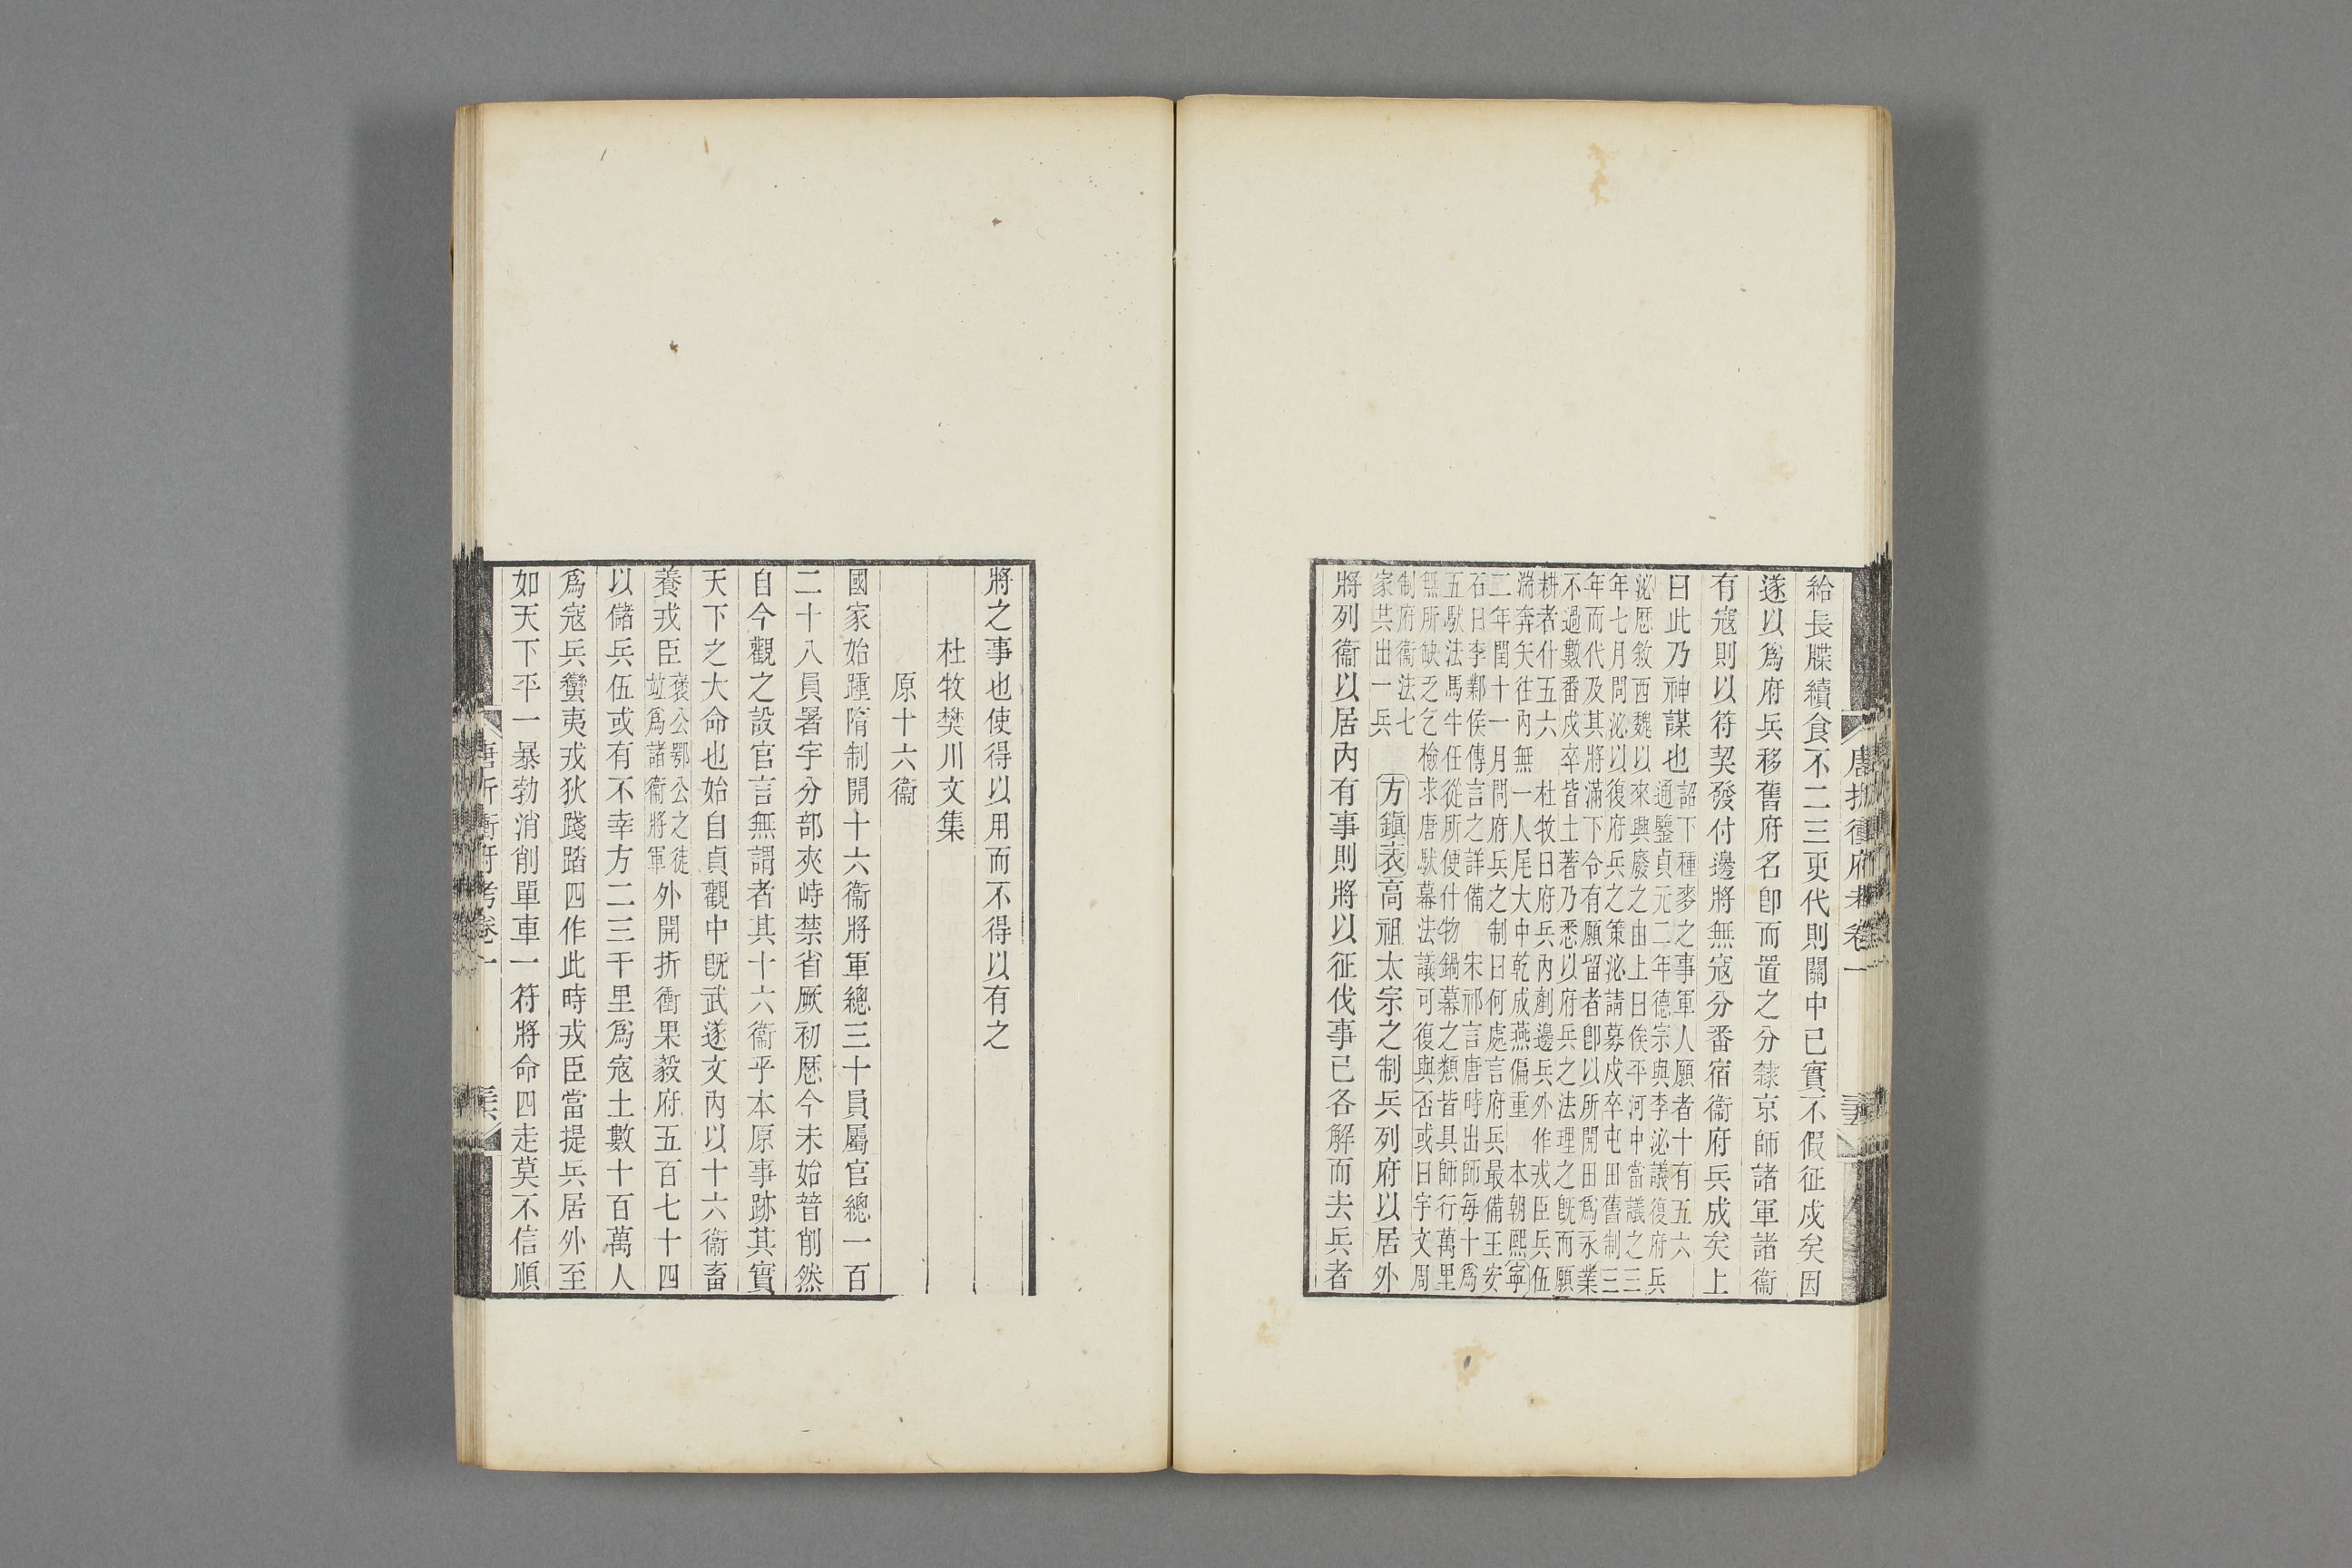 唐折衝府考卷一
給長牒續食不二三更代則關中已實不假征戍矣因
遂以爲府兵移舊府名卽而置之分隸京師諸軍諸衞
有寇則以符契發付邊將無寇分番宿衞府兵成矣上
曰此乃神謀也
詔下種麥之事軍人願者十有五六
通鑒貞元二年德宗與李泌議復府兵
泌歷敘西魏以來興廢之由上曰俟平河中當議之三
年七月問泌以復府兵之策泌請募戍卒屯田舊制三
年而代及其將滿下令有願留者卽以所開田爲永業
不過數番戍卒皆土著乃悉以府兵之法理之旣而願
耕者什五六 杜牧曰府兵內剷邊兵外作戎臣兵伍
湍奔矢往內無一人尾大中乾成燕偏重 本朝熙寧
二年閏十一月問府兵之制曰何處言府兵最備王安
石曰李鄴侯傳言之詳備 宋祁言唐時出師每十爲
五馱法馬牛任從所使什物鍋幕之類皆具師行萬里
無所缺乏乞檢求唐馱幕法議可復與否或曰宇文周
制府衞法七
家共出一兵
方鎭表高祖太宗之制兵列府以居外
將列衞以居內有事則將以征伐事已各解而去兵者
將之事也使得以用而不得以有之
杜牧樊川文集
原十六衞
國家始踵隋制開十六衞將軍總三十員屬官總一百
二十八員署宇分部夾峙禁省厥初歷今未始替削然
自今觀之設官言無謂者其十六衞乎本原事跡其實
天下之大命也始自貞觀中旣武遂文內以十六衞畜
養戎臣
褒公鄂公之徒
竝爲諸衞將軍
外開折衝果毅府五百七十四
以儲兵伍或有不幸方二三千里爲寇土數十百萬人
爲寇兵蠻夷戎狄踐踏四作此時戎臣當提兵居外至
如天下平一暴勃消削單車一符將命四走莫不信順
唐折衝府考卷一